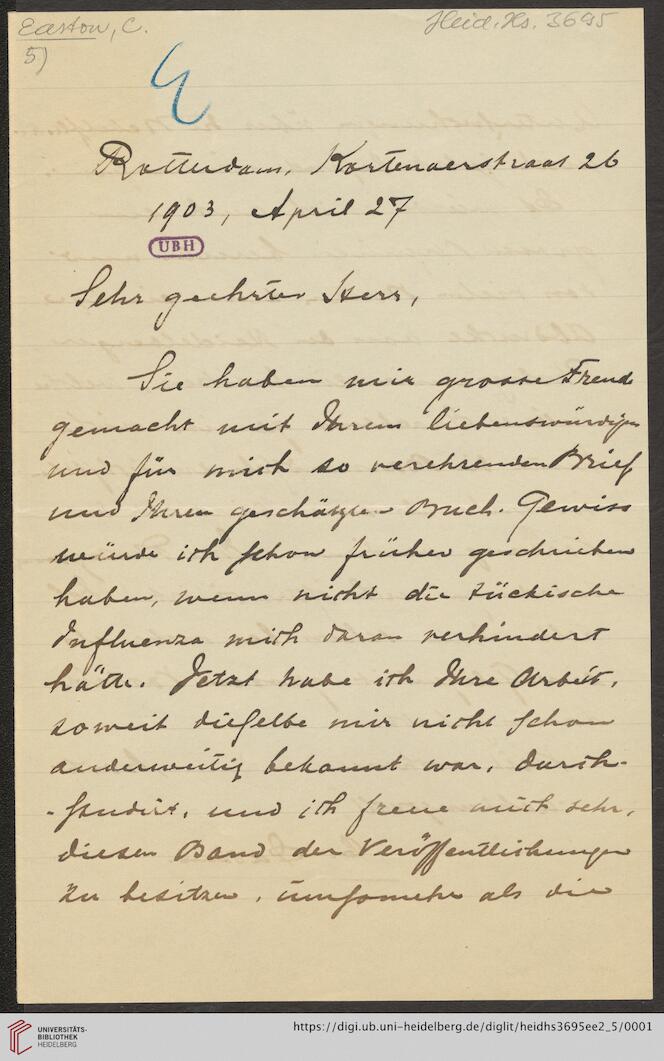 Easton, C.
Heid. Hs. 3695
5)
Rotterdam, Kortenaerstraat 26
1903, April 27
UBH
Sehr geehrter Herr,
Sie haben mir grosse Freude
gemacht mit Ihrem liebenswürdigen
und für mich so verehrenden Brief
und Ihren geschätzten Buch. Gewiss
würde ich schon früher geschrieben
haben, wenn nicht die tückische
Influenza mich daran verhindert
hätte. Jetzt habe ich Ihre Arbeit,
soweit dieselbe mir nicht schon
anderweitig bekannt war, durch-
-studirt, und ich freue mich sehr,
diesen Band der Veröffentlichungen
zu besitzen, umsomehr als die
UNIVERSITÄTS-
BIBLIOTHEK
HEIDELBERG
https://digi.ub.uni-heidelberg.de/diglit/heidhs3695ee2_5/0001